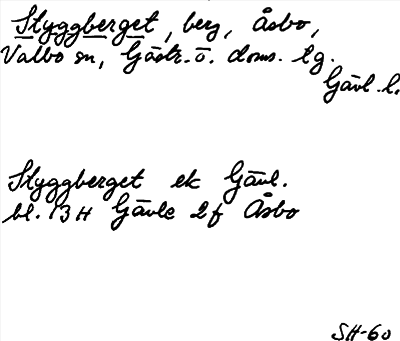 Styggberget, berg, Åsbo,
Valbo sn, Gästr. ö. doms. tg.
Gävl. l.
Styggberget ek Gävl.
bl. 13 H Gävle 2f Åsbo
SH-60